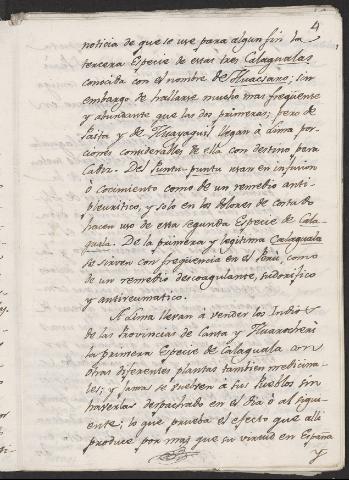 4
noticia de que se use para algun fin la
tercera Especie de estas tres Calagualas
conocida con el nombre de Huacsaro; sin
embargo de hallarse mucho mas freqüente
y abundante que las dos primeras; pero de
Pasta y de Huayaquil llegan à Lima por-
ciones considerables de ella con destino para
Cadiz. Del Puntu-puntu usan en infusion
ò cocimiento como de un remedio anti-
pleuritico, y solo en los dolores de costado
hacen uso de esta segunda Especie de Cala-
guala. De la primera y legitima Calaguala
se sirven con freqüencia en el Perù, como
de un remedio descoagulante, sudorifico
y antireumatico.
A Lima llevan à vender los Indios
de las Provincias de Canta y Huarocheri
la primera Especie de Calaguala con
otras diferentes plantas tambien medicina-
les; y jamas se vuelven à sus Pueblos sin
haverlas despachado en el dia ò al siguı-
ente; lo que prueba el efecto que alli
produce por mas que su virtud en España
y